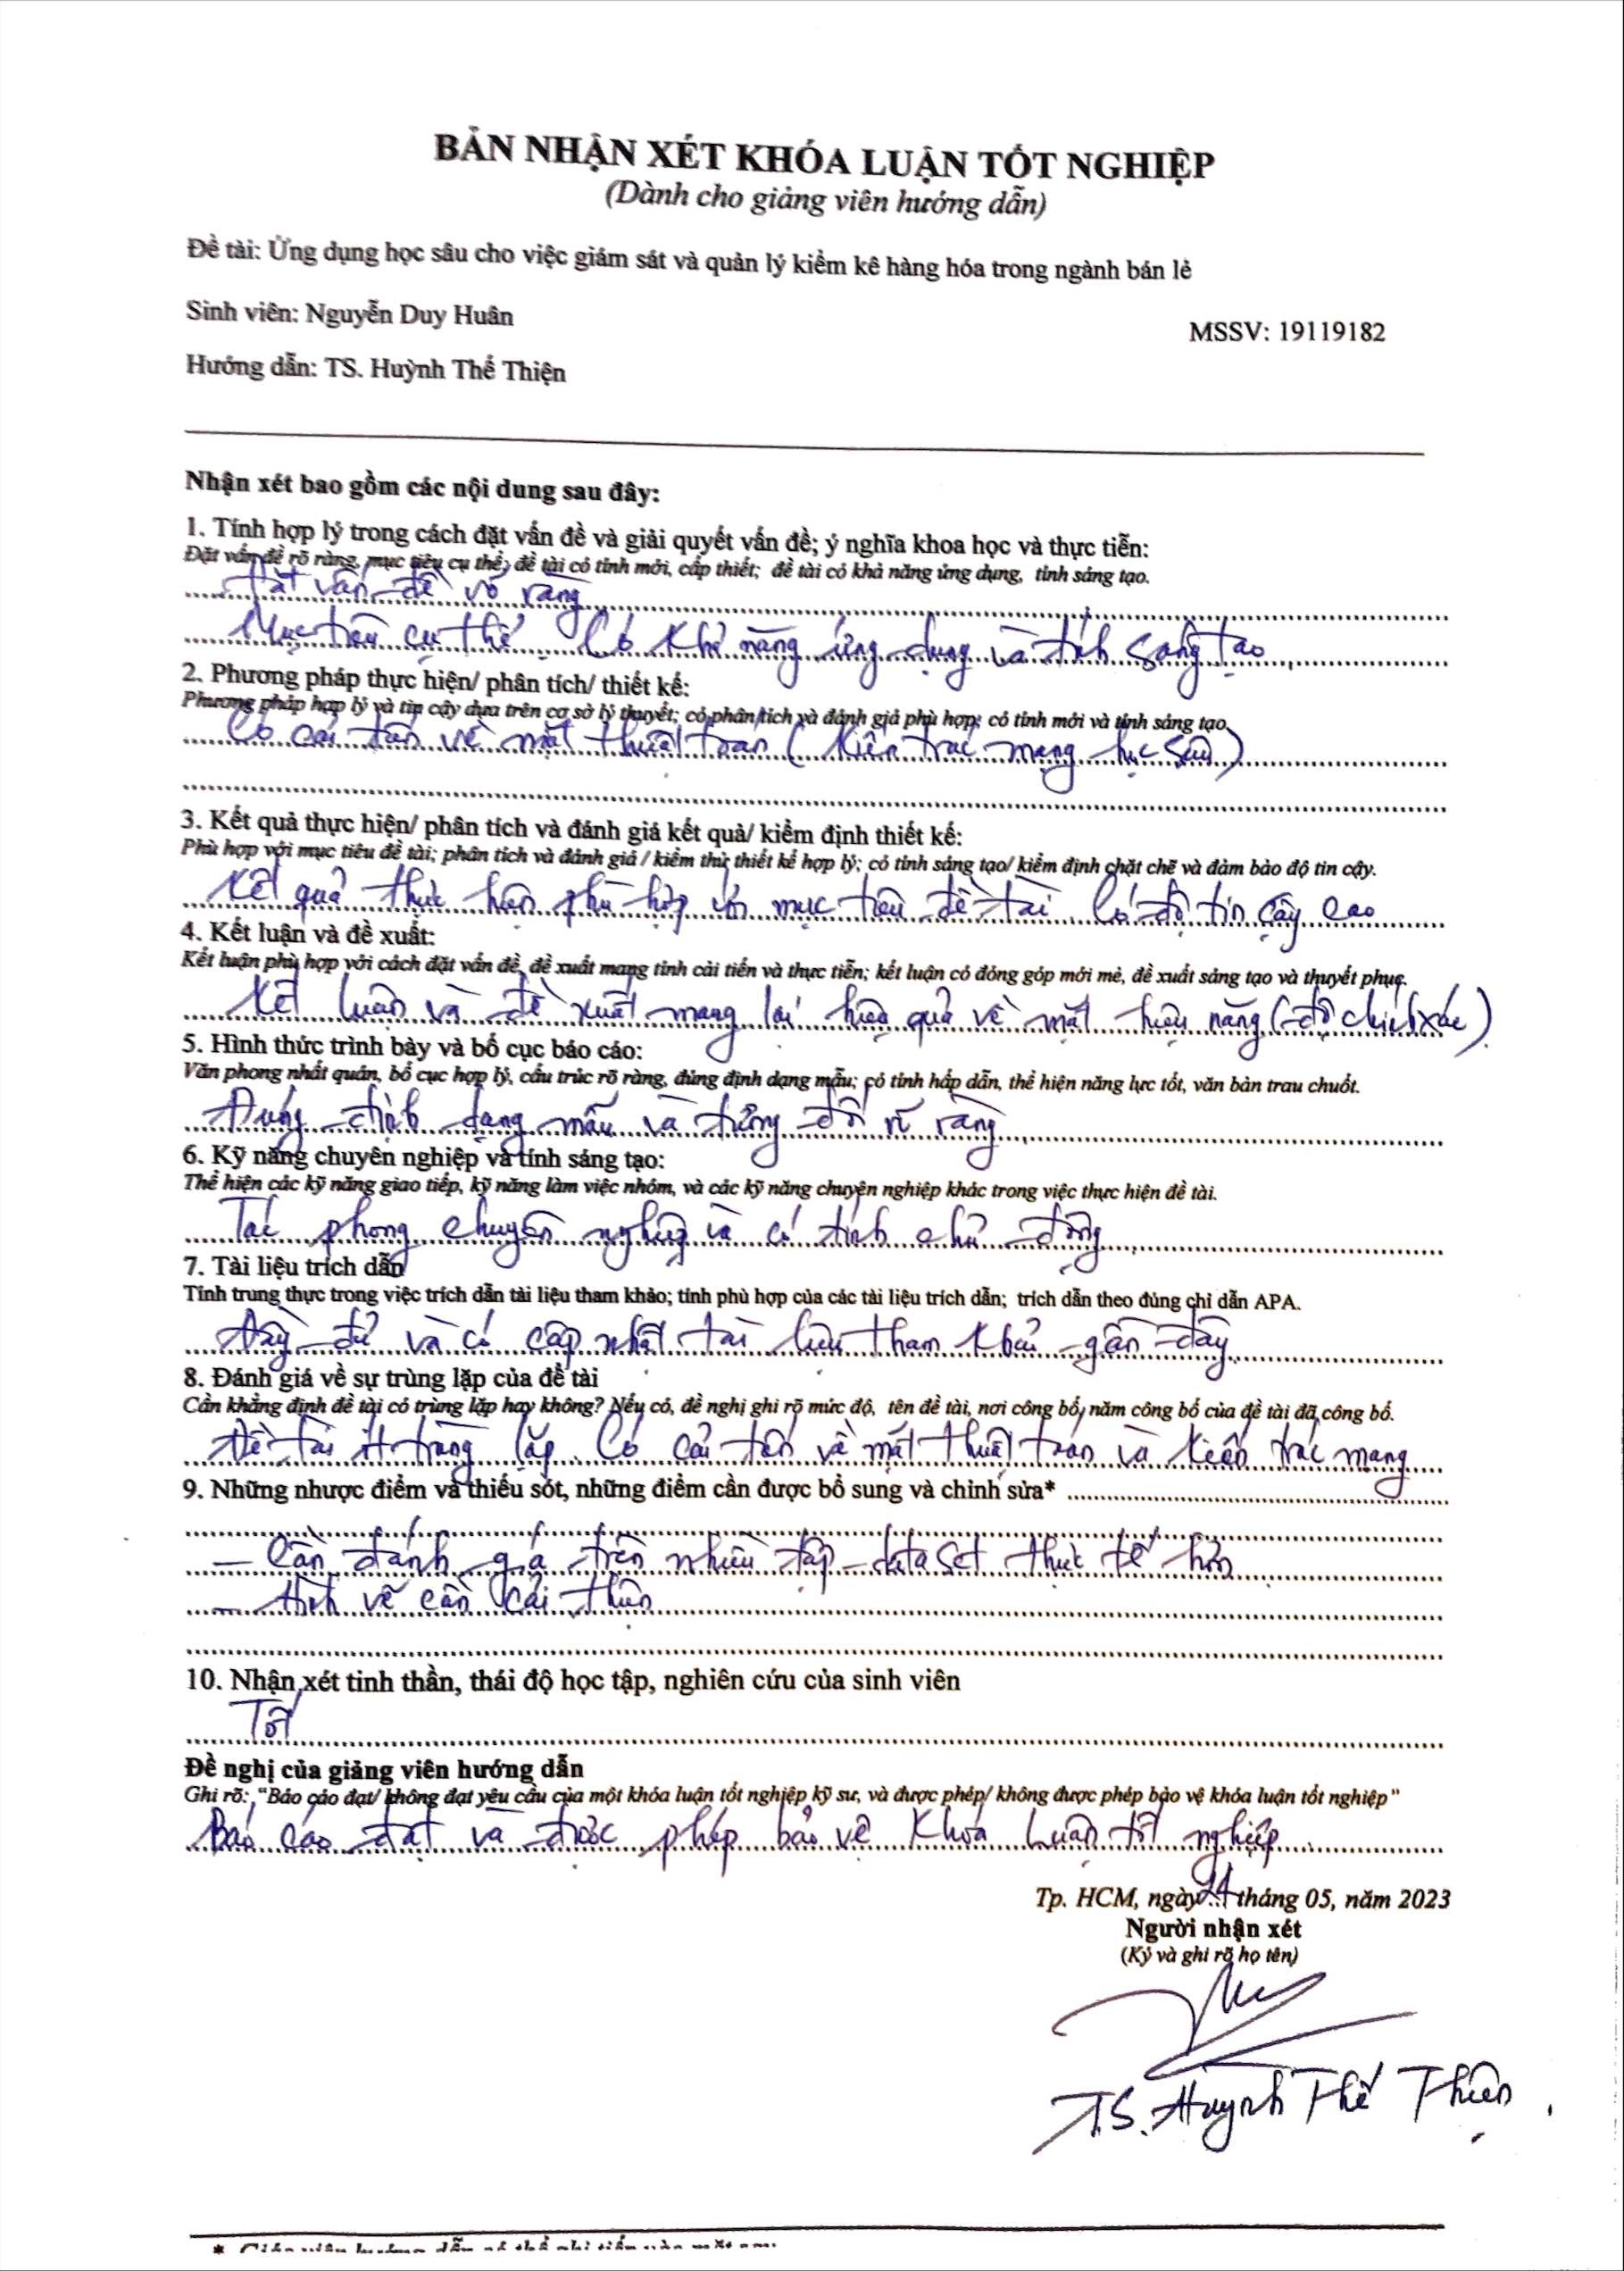 BẢN NHẬN XÉT KHÓA LUẬN TỐT NGHIỆP
(Dành cho giảng viên hướng dẫn)
Đề tài: Ứng dụng học sâu cho việc giám sát và quản lý kiểm kê hàng hóa trong ngành bán lẻ
Sinh viên: Nguyễn Duy Huân
MSSV: 19119182
Hướng dẫn: TS. Huỳnh Thế Thiện
Nhận xét bao gồm các nội dung sau đây:
1. Tính hợp lý trong cách đặt vấn đề và giải quyết vấn đề; ý nghĩa khoa học và thực tiễn:
Đặt vấn đề rõ ràng, mục tiêu cụ thể; đề tài có tính mới, cấp thiết; đề tài có khả năng ứng dụng, tính sáng tạo.
Đặt vấn đề rõ ràng
Mục tiêu cụ thể. Có khả năng ứng dụng và tính sáng tạo.
2. Phương pháp thực hiện/ phân tích/ thiết kế:
Phương pháp hợp lý và tin cậy dựa trên cơ sở lý thuyết; có phân tích và đánh giá phù hợp; có tính mới và tính sáng tạo.
Có cải tiến về mặt thuật toán (Kiến trúc mạng học sâu)
3. Kết quả thực hiện/ phân tích và đánh giá kết quả/ kiểm định thiết kế:
Phù hợp với mục tiêu đề tài; phân tích và đánh giá / kiểm thử thiết kế hợp lý; có tính sáng tạo/ kiểm định chặt chẽ và đảm bảo độ tin cậy.
Kết quả thực hiện phù hợp với mục tiêu đề tài. Có độ tin cậy cao
4. Kết luận và đề xuất:
Kết luận phù hợp với cách đặt vấn đề, đề xuất mang tính cải tiến và thực tiễn; kết luận có đóng góp mới mẻ, đề xuất sáng tạo và thuyết phục.
Kết luận và đề xuất mang lại hiệu quả về mặt hiệu năng (độ chính xác).
5. Hình thức trình bày và bố cục báo cáo:
Văn phong nhất quán, bố cục hợp lý, cấu trúc rõ ràng, đúng định dạng mẫu; có tính hấp dẫn, thể hiện năng lực tốt, văn bản trau chuốt.
Đúng định dạng mẫu và tương đối rõ ràng.
6. Kỹ năng chuyên nghiệp và tính sáng tạo:
Thể hiện các kỹ năng giao tiếp, kỹ năng làm việc nhóm, và các kỹ năng chuyên nghiệp khác trong việc thực hiện đề tài.
Tác phong chuyên nghiệp và có tính chủ động.
7. Tài liệu trích dẫn
Tính trung thực trong việc trích dẫn tài liệu tham khảo; tính phù hợp của các tài liệu trích dẫn; trích dẫn theo đúng chỉ dẫn APA.
Đầy đủ và có cập nhật tài liệu tham khảo gần đây
8. Đánh giá về sự trùng lặp của đề tài
Cần khẳng định đề tài có trùng lặp hay không? Nếu có, đề nghị ghi rõ mức độ, tên đề tài, nơi công bố, năm công bố của đề tài đã công bố.
Đề tài ít trùng lặp. Có cải tiến về mặt thuật toán và kiến trúc mạng
9. Những nhược điểm và thiếu sót, những điểm cần được bổ sung và chỉnh sửa*
- Cần đánh giá trên nhiều tập dataset thực tế hơn
- Hình vẽ cần cải thiện
10. Nhận xét tinh thần, thái độ học tập, nghiên cứu của sinh viên
Tốt
Đề nghị của giảng viên hướng dẫn
Ghi rõ: "Báo cáo đạt/ không đạt yêu cầu của một khóa luận tốt nghiệp kỹ sư, và được phép/ không được phép bảo vệ khóa luận tốt nghiệp"
Báo cáo đạt và được phép bảo vệ Khóa Luận tốt nghiệp.
Tp. HCM, ngày 24 tháng 05, năm 2023
Người nhận xét
(Ký và ghi rõ họ tên)
TS. Huỳnh Thế Thiện